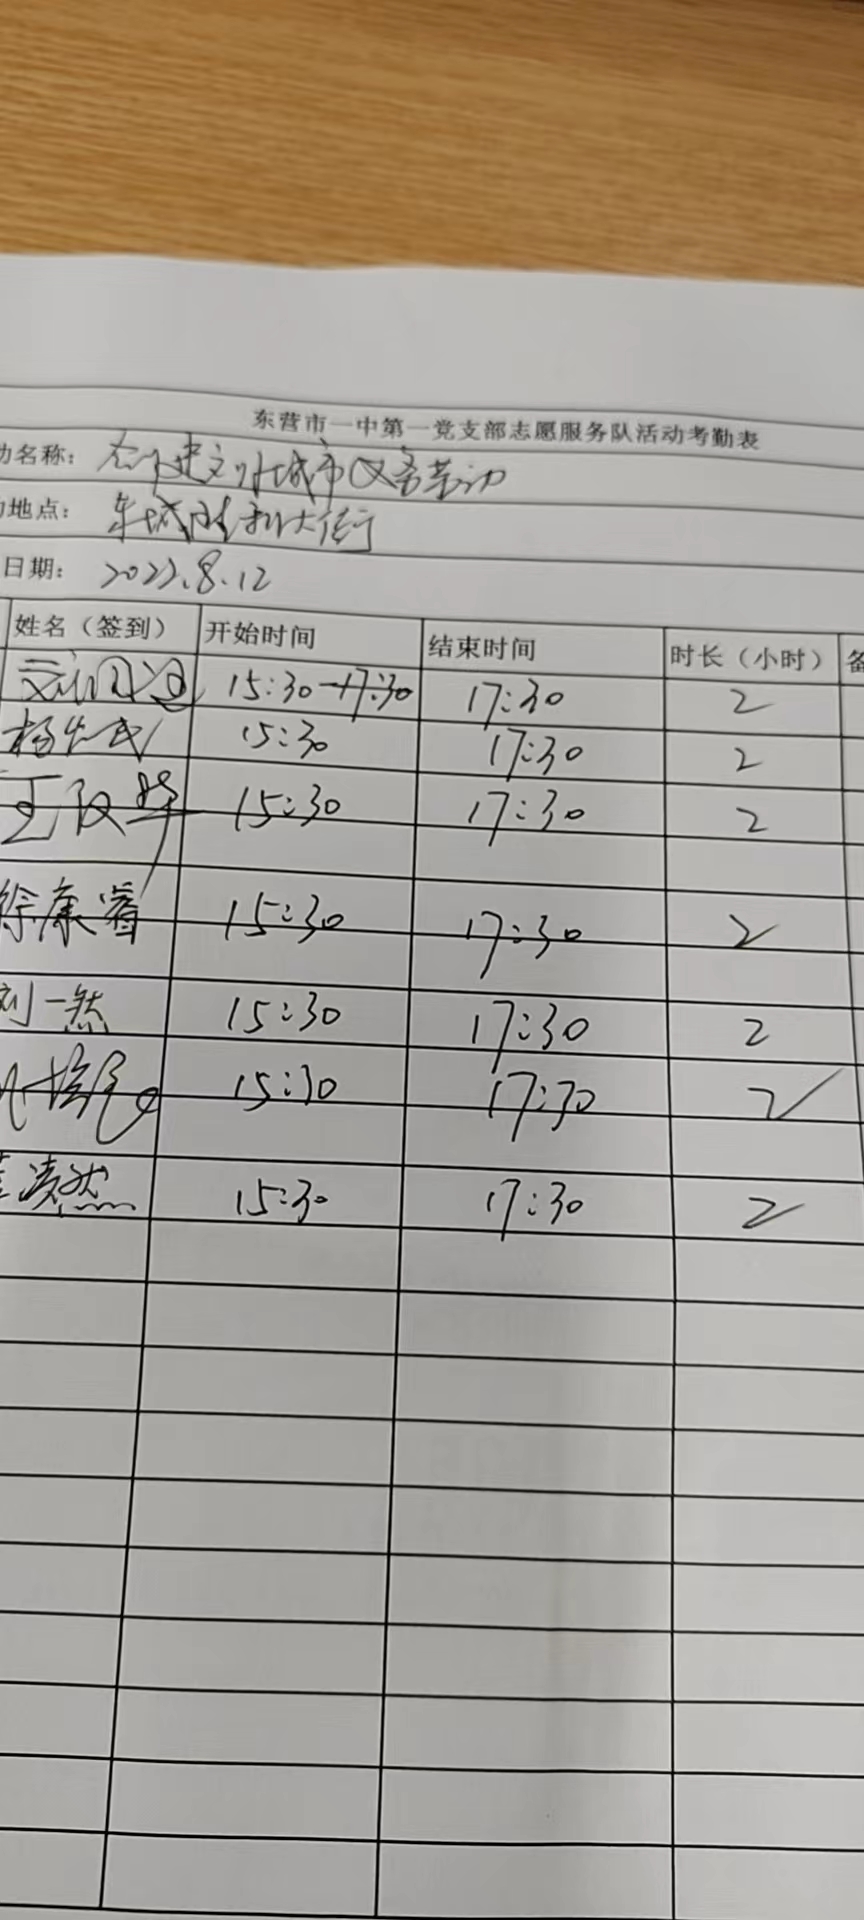 东营市一中第一党支部志愿服务队活动考勤表
动名称: 建文明城市义务劳动
地点: 东城胜利大街
日期: 2022.8.12
姓名（签到） 开始时间 结束时间 时长（小时） 备
15:30-17:30 17:30 2
15:30 17:30 2
王 华 15:30 17:30 2
徐康 15:30 17:30 2
刘一然 15:30 17:30 2
15:30 17:30 2
然 15:30 17:30 2